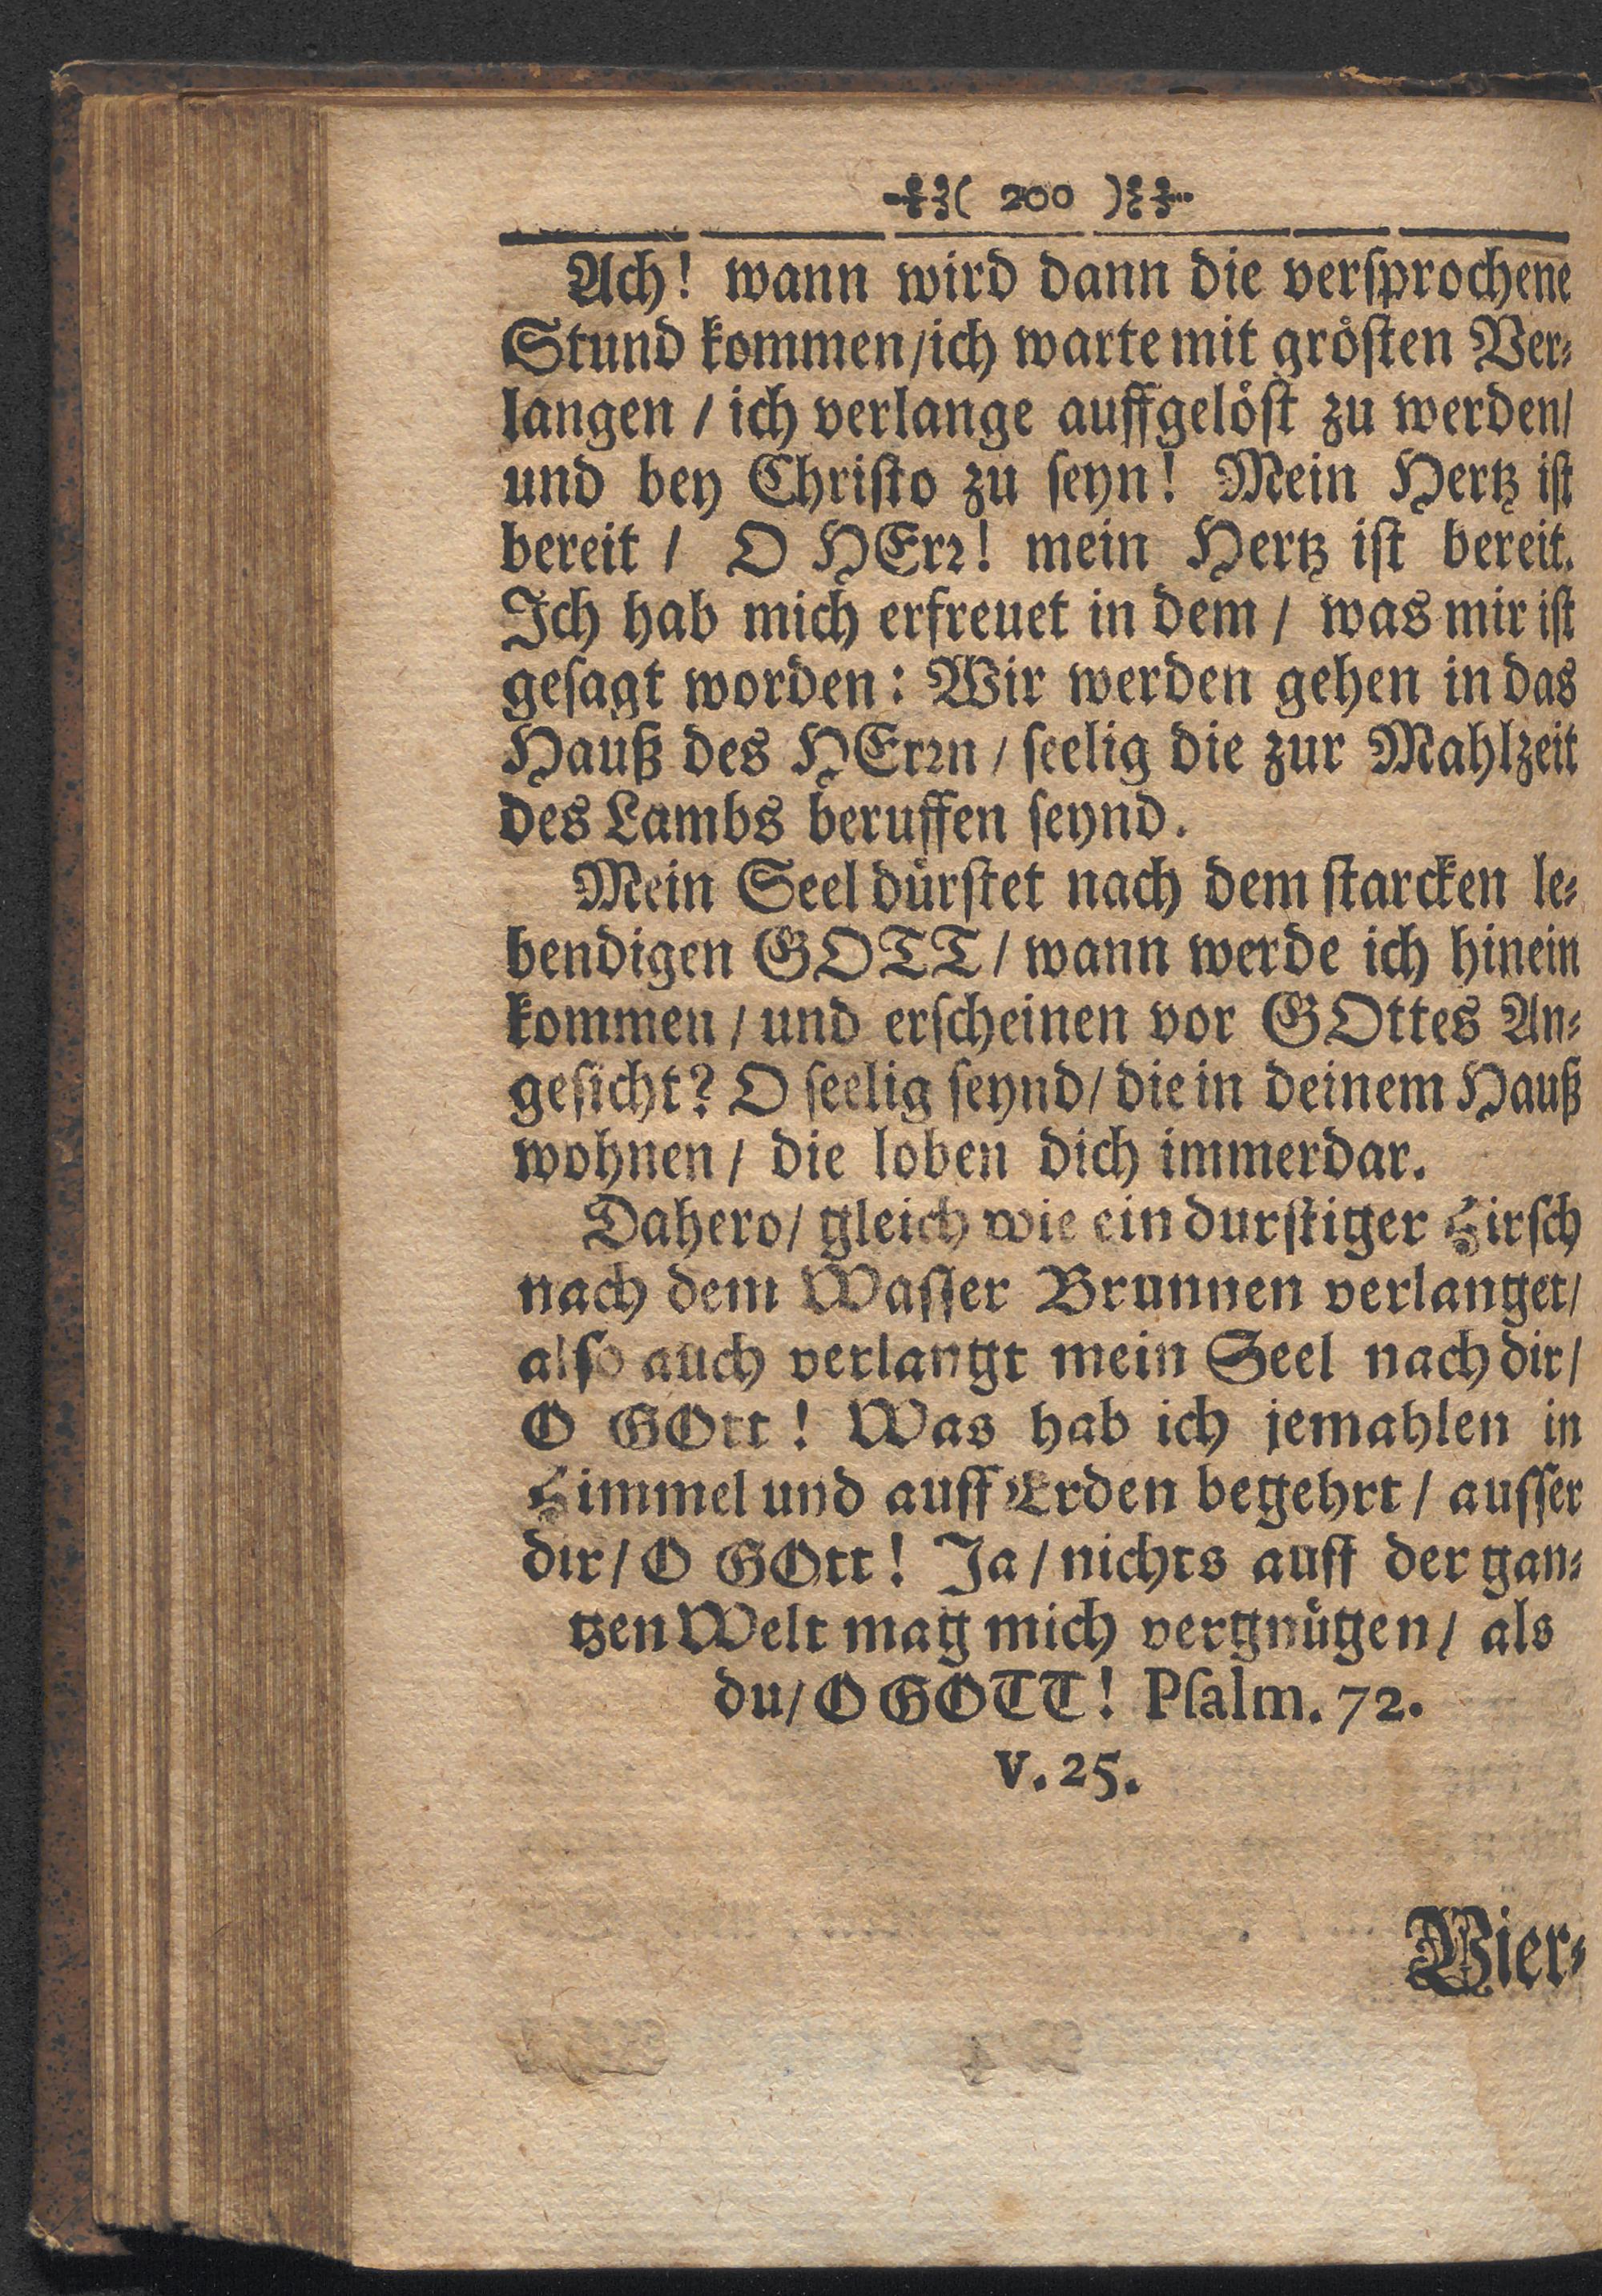 ( 200 )
Ach! wann wird dann die verſprochene
Stund kommen/ich warte mit gröſten Ver⸗
langen / ich verlange auffgelöſt zu werden/
und bey Chriſto zu ſeyn! Mein Hertz iſt
bereit / O HErꝛ! mein Hertz iſt bereit.
Ich hab mich erfreuet in dem / was mir iſt
geſagt worden: Wir werden gehen in das
Hauß des HErꝛn / ſeelig die zur Mahlzeit
des Lambs beruffen ſeynd.
Mein Seel dürſtet nach dem ſtarcken le⸗
bendigen GOTT / wann werde ich hinein
kommen / und erſcheinen vor GOttes An⸗
geſicht? O ſeelig ſeynd/ die in deinem Hauß
wohnen / die loben dich immerdar.
Dahero/ gleich wie ein durſtiger Hirſch
nach dem Waſſer Brunnen verlanget/
alſo auch verlangt mein Seel nach dir/
O GOtt! Was hab ich jemahlen in
Himmel und auff Erden begehrt / auſſer
dir/ O GOtt! Ja / nichts auff der gan⸗
tzen Welt mag mich vergnügen/ als
du/ O GOTT! Pſalm. 72.
v. 25.
Vier⸗